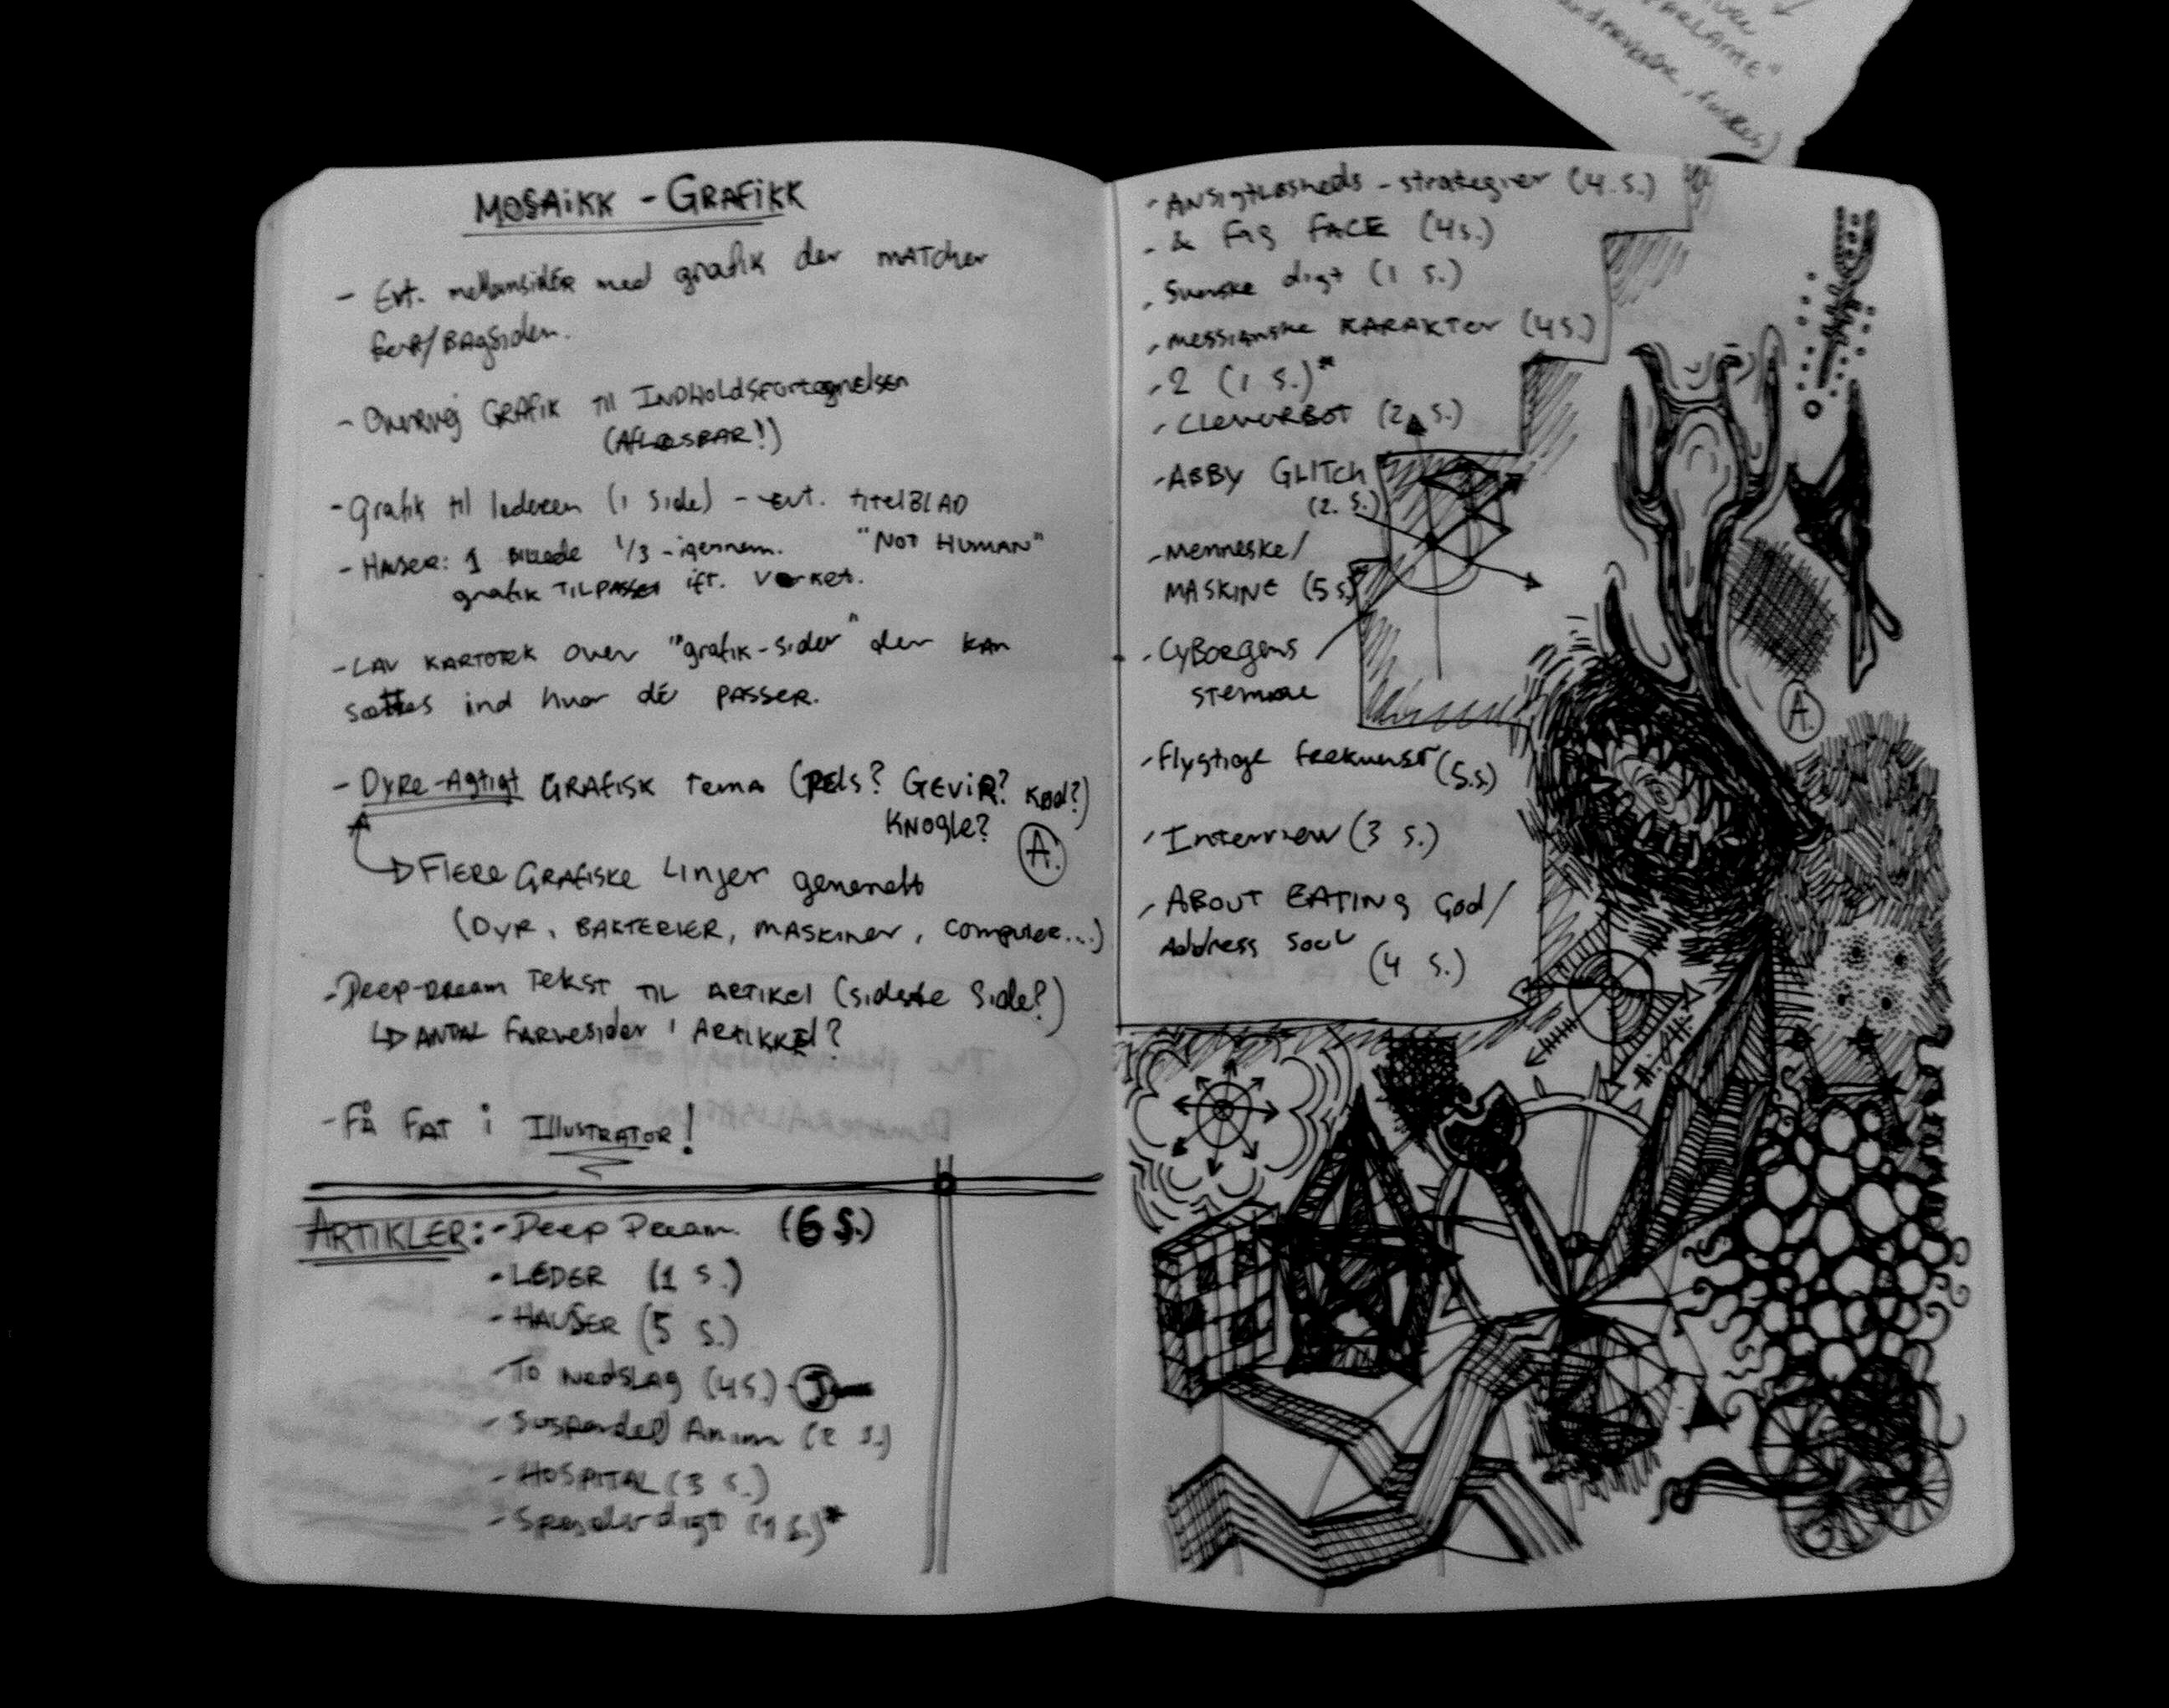 MOSAIKK - GRAFIKK
- Evt. mellomsider med grafik der MATcher
for/BAgsiden.
- Overvej GRAFIK til INDHOLDSfortegnelsen
(AFLÆSBAR!)
- Grafik til lederen (1 side) - evt. titelBLAD
"NOT HUMAN"
- HAUSER: 1 billede 1/3 - igennem.
grafik TILPASSES ift. Værket.
- LAV KARTOTEK over "grafik-sider" der KAN
sættes ind hvor de PASSER.
- DyRe-Agtigt GRAFISK Tema (PELS? GEVIR? KØD?)
KNOGLE?
A.
FlERE GRAFISKE Linjer generelt
(DYR, BAKTERIER, MASKINER, computer...)
- Deep-Dream TEKST TIL ARTIKEL (sidste side?)
ANTAL farvesider i ARTIKKEL?
- Få FAT i ILLUSTRATOR!
ARTIKLER: - Deep Dream. (6 S.)
- LEDER (1 S.)
- HAUSER (5 S.)
- To nedslag (4 S.)
- Suspended Anim (2 S.)
- HOSPITAL (3 S.)
- digt (1 S.)*
- ANSIGTLØSHEDS - strategier (4. S.)
- & FAG FACE (4 S.)
- Svenske digt (1 S.)
- messianske KARAKTER (4 S.)
- 2 (1 S.)*
- CLEVERBOT (2 S.)
- ABBY GLITCH
(2. S.)
- menneske/
MASKINE (5 S.)
- CyBorgens
stemme
- Flygtige (5.S.)
- Interview (3 S.)
- ABOUT EATING God/
Address Soul
(4 S.)
A.